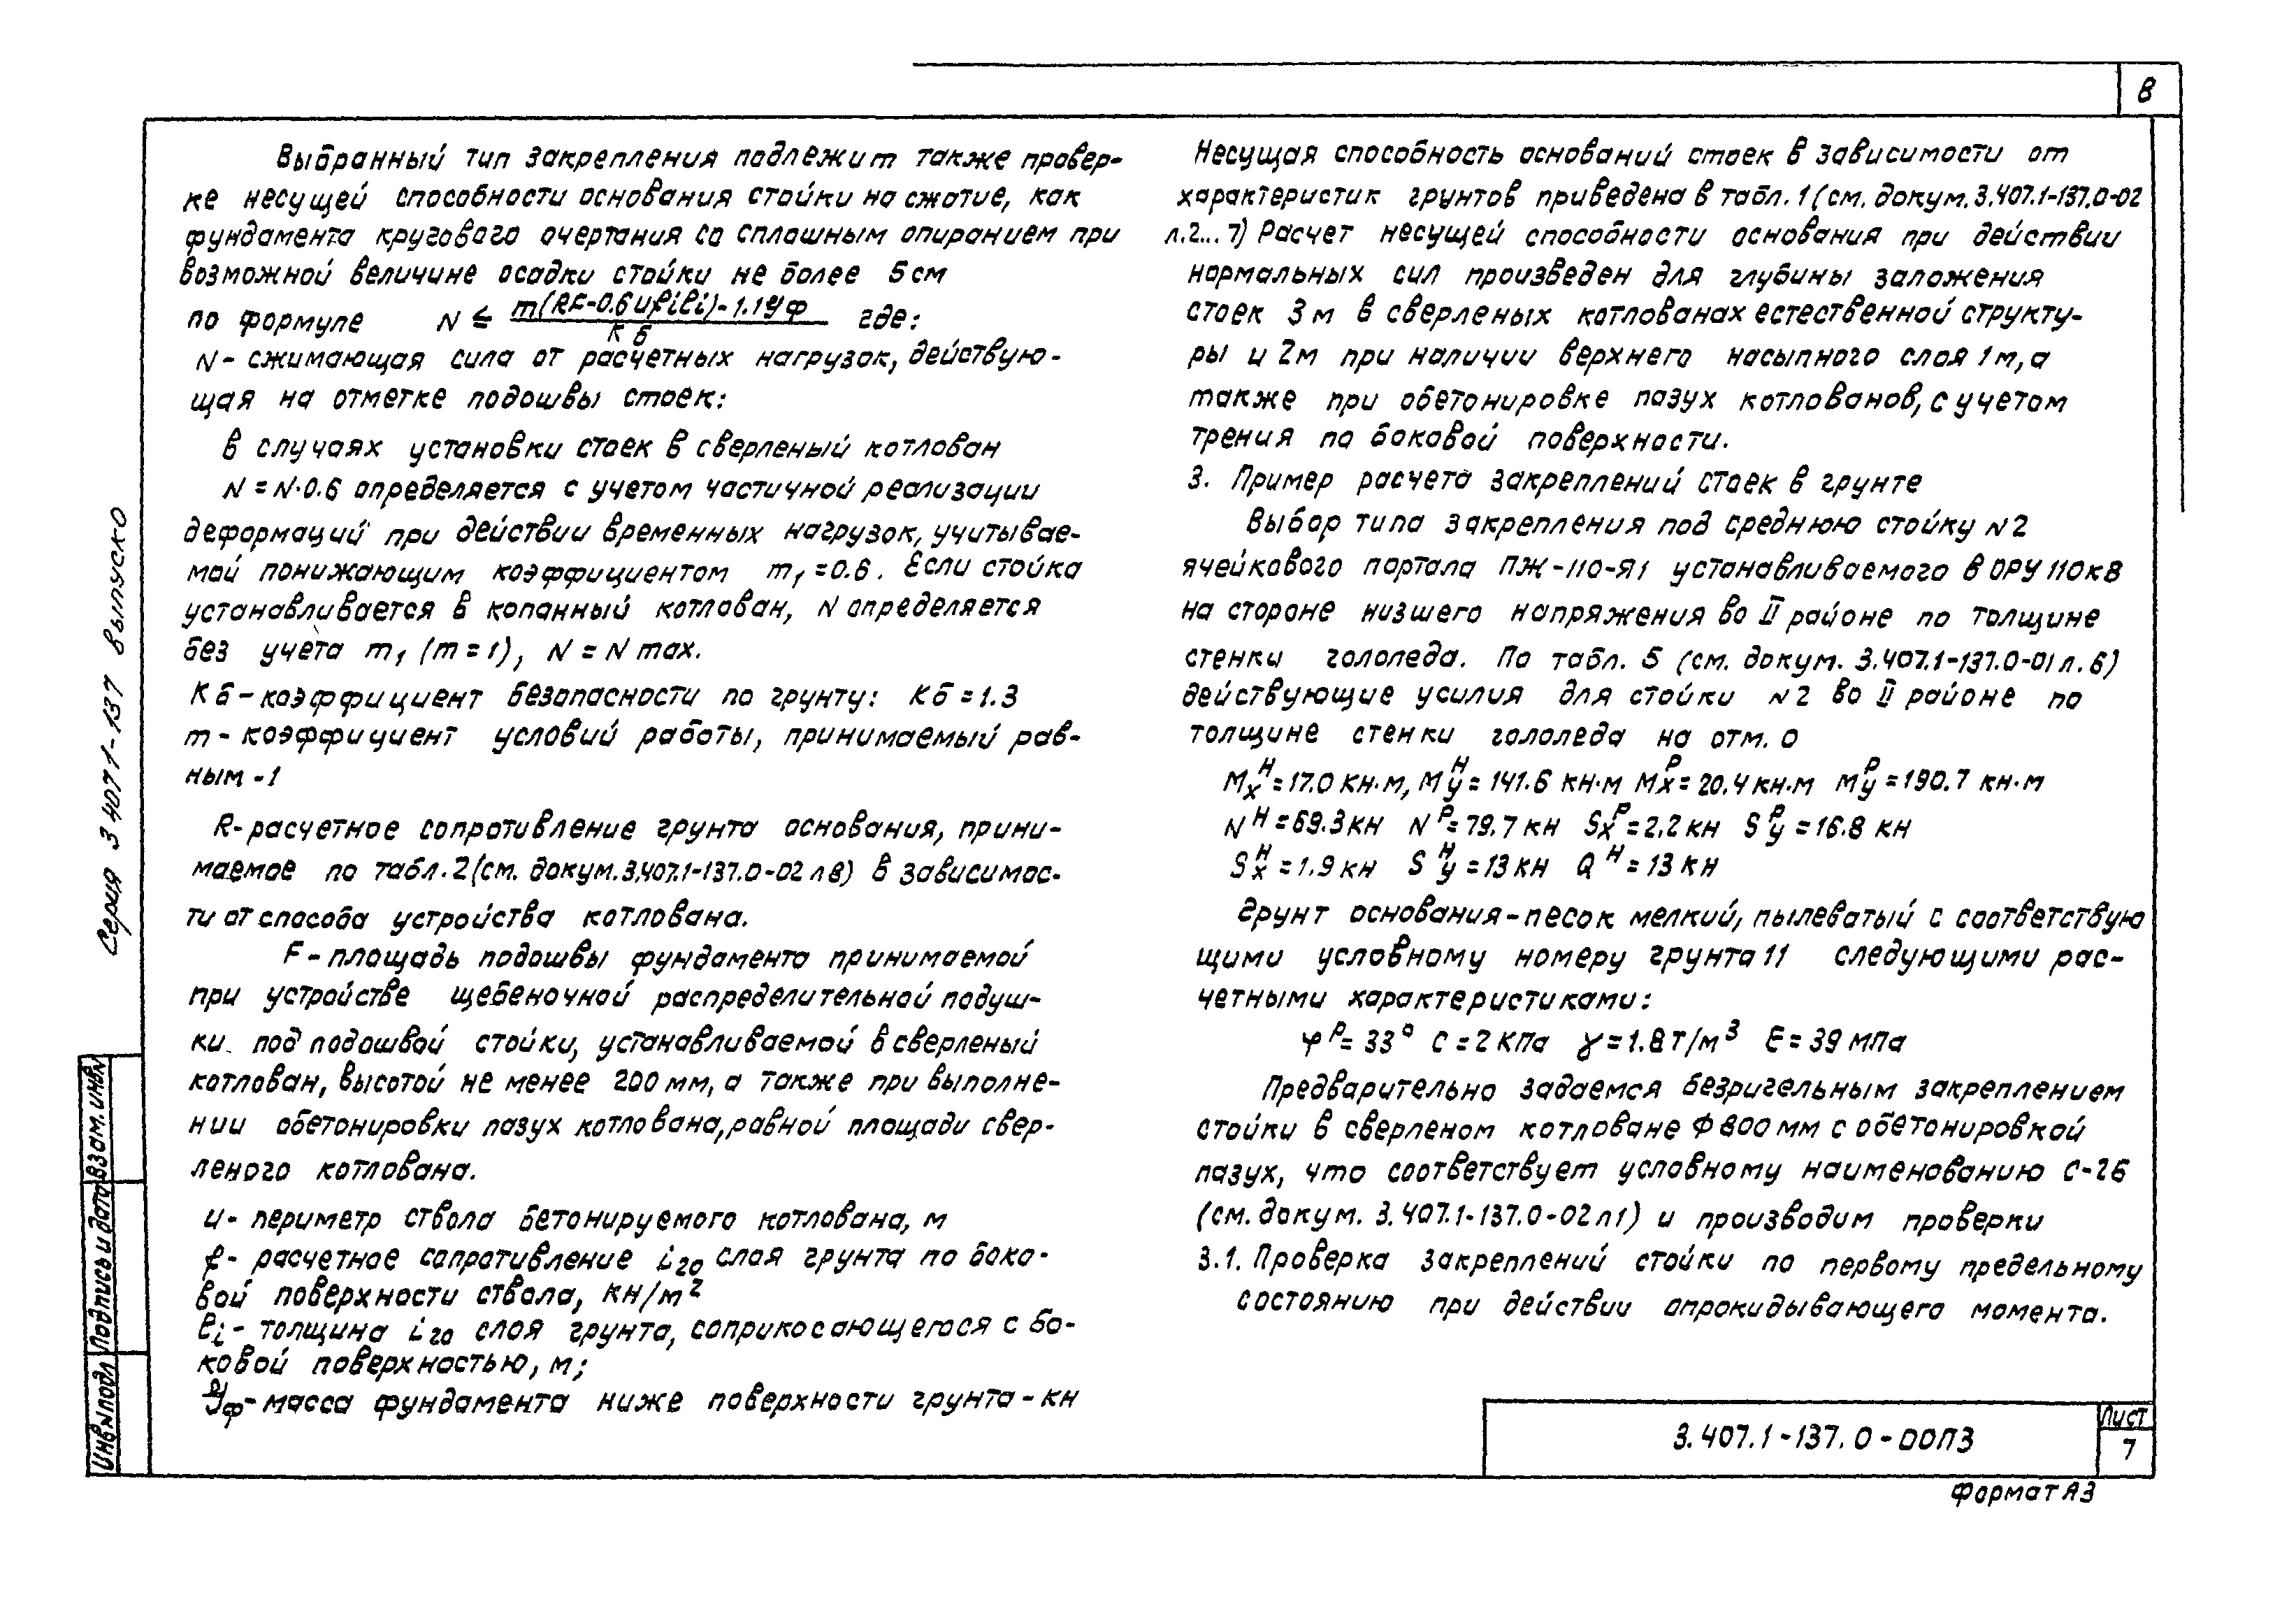 8
Выбранный тип закрепления подлежит также провер-
ке несущей способности основания стойки на сжатие, как
фундамента кругового очертания со сплошным опиранием при
возможной величине осадки стойки не более 5 см
по формуле N ≤ m(RF-0.6Ufili)-1.1Уф / Кб где:
N - сжимающая сила от расчетных нагрузок, действую-
щая на отметке подошвы стоек:
В случаях установки стоек в сверленый котлован
N = N·0.6 определяется с учетом частичной реализации
деформаций при действии временных нагрузок, учитывае-
мой понижающим коэффициентом m₁ = 0.6. Если стойка
устанавливается в копанный котлован, N определяется
без учета m₁ (m = 1), N = N max.
Кб - коэффициент безопасности по грунту: Кб = 1.3
m - коэффициент условий работы, принимаемый рав-
ным - 1
R - расчетное сопротивление грунта основания, прини-
маемое по табл. 2 (см. докум. 3.407.1-137.0-02 л 8) в зависимос-
ти от способа устройства котлована.
F - площадь подошвы фундамента принимаемой
при устройстве щебеночной распределительной подуш-
ки под подошвой стойки, устанавливаемой в сверленый
котлован, высотой не менее 200 мм, а также при выполне-
нии обетонировки пазух котлована, равной площади свер-
леного котлована.
u - периметр ствола бетонируемого котлована, м
f - расчетное сопротивление iго слоя грунта по боко-
вой поверхности ствола, кн/m²
ℓi - толщина iго слоя грунта, соприкосающегося с бо-
ковой поверхностью, м;
Уф - масса фундамента ниже поверхности грунта - кн
Несущая способность оснований стоек в зависимости от
характеристик грунтов приведена в табл. 1 (см. докум. 3.407.1-137.0-02
л.2... 7) Расчет несущей способности основания при действии
нормальных сил произведен для глубины заложения
стоек 3 м в сверленых котлованах естественной структу-
ры и 2м при наличии верхнего насыпного слоя 1 м, а
также при обетонировке пазух котлованов, с учетом
трения по боковой поверхности.
3. Пример расчета закреплений стоек в грунте
Выбор типа закрепления под среднюю стойку N 2
ячейкового портала ПЖ-110-Я1 устанавливаемого в ОРУ 110 кВ
на стороне низшего напряжения во II районе по толщине
стенки гололеда. По табл. 5 (см. докум. 3.407.1-137.0-01 л. 6)
действующие усилия для стойки N 2 во II районе по
толщине стенки гололеда на отм. 0
Mxᴴ = 17.0 кн·м, Myᴴ = 141.6 кн·м Mxᴾ = 20.4 кн·м Myᴾ = 190.7 кн·м
Nᴴ = 69.3 кн Nᴾ = 79.7 кн Sxᴾ = 2.2 кн Syᴾ = 16.8 кн
Sxᴴ = 1.9 кн Syᴴ = 13 кн Qᴴ = 13 кн
Грунт основания - песок мелкий, пылеватый с соответствую
щими условному номеру грунта 11 следующими рас-
четными характеристиками:
φᴾ = 33° C = 2 КПа γ = 1.8 Т/м³ E = 39 МПа
Предварительно задаемся безригельным закреплением
стойки в сверленом котловане Ф 800 мм с обетонировкой
пазух, что соответствует условному наименованию С-26
(см. докум. 3.407.1-137.0-02 л 1) и производим проверки
3.1. Проверка закреплений стойки по первому предельному
состоянию при действии опрокидывающего момента.
3.407.1-137.0-00ПЗ
Лист
7
Формат А3
Серия 3 407 1-137 выпуск 0
Взам. инв N
Подпись и дата
Инв N подл